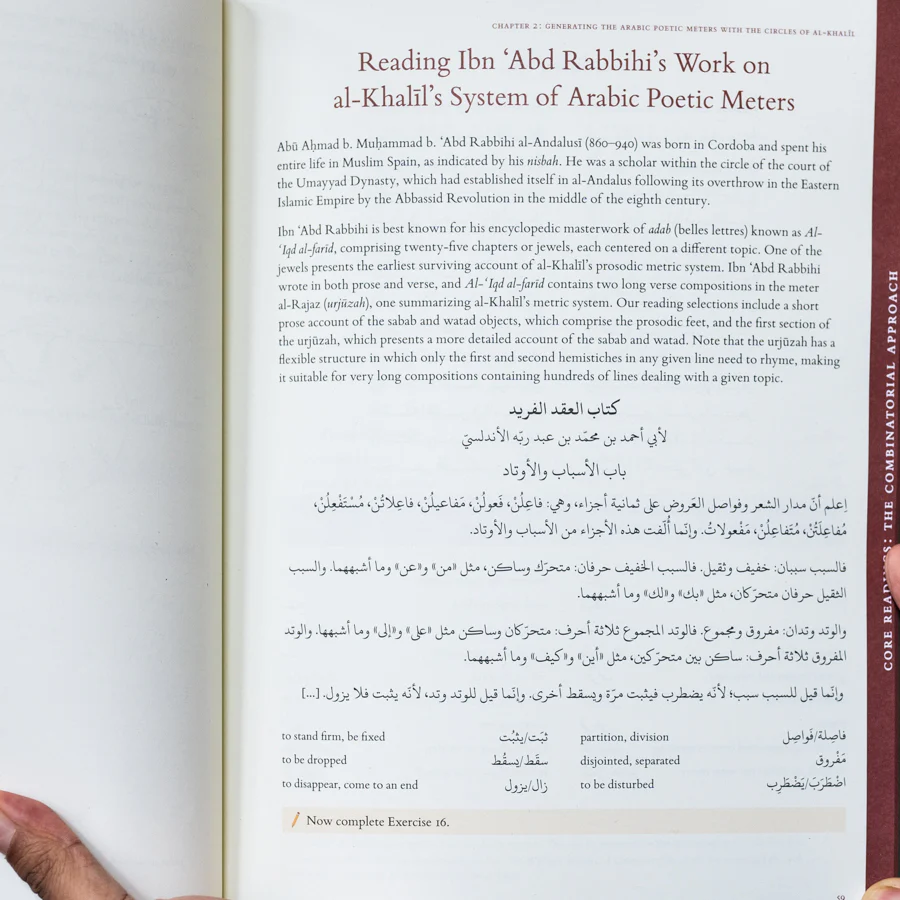 CHAPTER 2: GENERATING THE ARABIC POETIC METERS WITH THE CIRCLES OF AL-KHALĪL
Reading Ibn ʿAbd Rabbihi’s Work on
al-Khalīl’s System of Arabic Poetic Meters
Abū Aḥmad b. Muḥammad b. ʿAbd Rabbihi al-Andalusī (860–940) was born in Cordoba and spent his
entire life in Muslim Spain, as indicated by his nisbah. He was a scholar within the circle of the court of
the Umayyad Dynasty, which had established itself in al-Andalus following its overthrow in the Eastern
Islamic Empire by the Abbassid Revolution in the middle of the eighth century.
Ibn ʿAbd Rabbihi is best known for his encyclopedic masterwork of adab (belles lettres) known as Al-
ʿIqd al-farīd, comprising twenty-five chapters or jewels, each centered on a different topic. One of the
jewels presents the earliest surviving account of al-Khalīl’s prosodic metric system. Ibn ʿAbd Rabbihi
wrote in both prose and verse, and Al-ʿIqd al-farīd contains two long verse compositions in the meter
al-Rajaz (urjūzah), one summarizing al-Khalīl’s metric system. Our reading selections include a short
prose account of the sabab and watad objects, which comprise the prosodic feet, and the first section of
the urjūzah, which presents a more detailed account of the sabab and watad. Note that the urjūzah has a
flexible structure in which only the first and second hemistiches in any given line need to rhyme, making
it suitable for very long compositions containing hundreds of lines dealing with a given topic.
كتاب العقد الفريد
لأبي أحمد بن محمّد بن عبد ربّه الأندلسيّ
باب الأسباب والأوتاد
اِعلم أنّ مدار الشعر وفواصل العَروض على ثمانية أجزاء، وهي: فاعِلُنْ، فَعولُنْ، مَفاعيلُنْ، فاعِلاتُنْ، مُسْتَفْعِلُنْ،
مُفاعَلَتُنْ، مُتَفاعِلُنْ، مَفْعولاتُ. وإنّما أُلّفت هذه الأجزاء من الأسباب والأوتاد.
فالسبب سببان: خفيف وثقيل. فالسبب الخفيف حرفان: متحرّك وساكن، مثل «من» و«عن» وما أشبههما. والسبب
الثقيل حرفان متحرّكان، مثل «بك» و«لك» وما أشبههما.
والوتد وتدان: مفروق ومجموع. فالوتد المجموع ثلاثة أحرف: متحرّكان وساكن مثل «على» و«إلى» وما أشبهها. والوتد
المفروق ثلاثة أحرف: ساكن بين متحرّكين، مثل «أين» و«كيف» وما أشبههما.
وإنّما قيل للسبب سبب؛ لأنّه يضطرب فيثبت مرّة ويسقط أخرى. وإنّما قيل للوتد وتد، لأنّه يثبت فلا يزول. [...]
to stand firm, be fixed ثبَت/يثبُت partition, division فاصِلة/فَواصِل
to be dropped سقَط/يسقُط disjointed, separated مَفْروق
to disappear, come to an end زال/يزول to be disturbed اضْطَرَبَ/يَضْطَرِب
Now complete Exercise 16.
59
CORE READINGS: THE COMBINATORIAL APPROACH